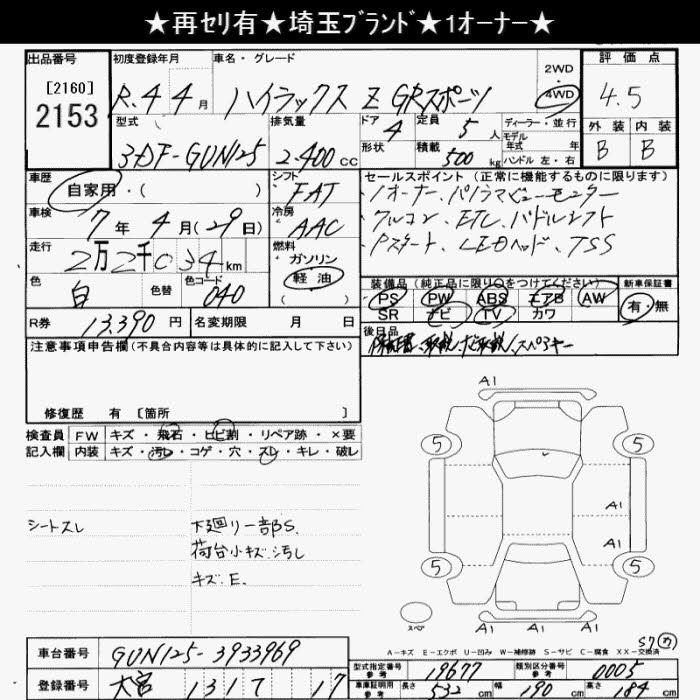 ★再セリ有★埼玉ブランド★1オーナー★
出品番号 初度登録年月 車名・グレード 2WD 4WD 評価点
[2160]
2153
R.4 4月 ハイラックス Z GRスポーツ 4.5
型式 排気量 ドア 定員 ディーラー・並行 外装 内装
3DF-GUN125 2.400cc 4 5人 モデル年式 年 B B
形状 積載 500kg ハンドル 左・右
車歴 シフト セールスポイント (正常に機能するものに限ります)
自家用・( ) FAT ・1オーナー、パノラマビューモニター
車検 冷房 クルコン、ETC、パドルシフト
7年4月(29日) AAC Pスタート、LEDヘッド、TSS
走行 燃料
2万2千034km ガソリン
軽油
( )
色 色替 色コード
白 040
装備品 (純正品に限り○をつけてください) 新車保証書
PS PW ABS エアB AW 有・無
SR ナビ TV カワ
R券 13.390円 名変期限 月 日
後日品
注意事項申告欄(不具合内容等は具体的に記入して下さい)
修復歴 有 [箇所 ]
検査員 FW キズ・飛石・ヒビ割・リペア跡・×要
記入欄 内装 キズ・汚レ・コゲ・穴・スレ・キレ・破レ
シートスレ 下廻り一部S.
荷台小キズ.汚し
キズ.E.
A1
5 5
A1
A1
5 5
A1
スペア
A-キズ E-エクボ U-凹み W-補修跡 S-サビ C-腐食 XX-交換済
車台番号 GUN125-3933969
登録番号 大宮 131 17
型式指定番号 参考 19677 類別区分番号 参考 0005
車庫証明用 参考 長さ 532cm 幅 190cm 高さ 184cm